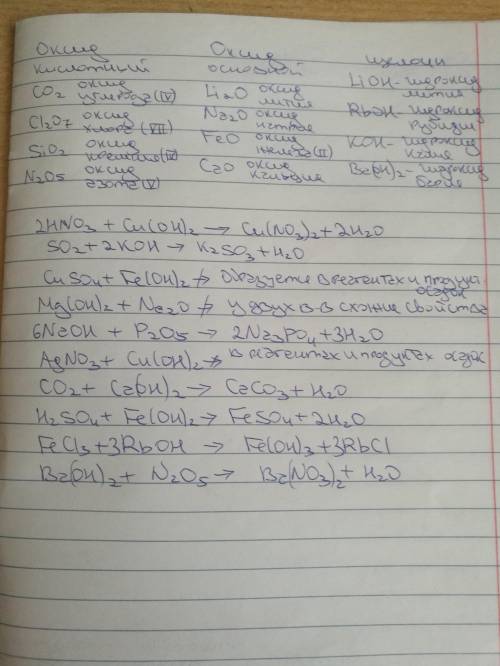 Оксид Оксид щелочи
кислотный основной
CO2 оксид углерода (IV) Li2O оксид лития LiOH - гидроксид лития
Cl2O7 оксид хлора (VII) Na2O оксид натрия RbOH - гидроксид рубидия
SiO2 оксид кремния (IV) FeO оксид железа (II) KOH - гидроксид калия
N2O5 оксид азота (V) CaO оксид кальция Ba(OH)2 - гидроксид бария
2HNO3 + Cu(OH)2 → Cu(NO3)2 + 2H2O
SO2 + 2KOH → K2SO3 + H2O
CuSO4 + Fe(OH)2 ↛ Образуется в реагентах и продукт осадок
Mg(OH)2 + Na2O ↛ у двух в-в схожие свойства
6NaOH + P2O5 → 2Na3PO4 + 3H2O
AgNO3 + Cu(OH)2 ↛ в реагентах и продуктах осадок
CO2 + Ca(OH)2 → CaCO3 + H2O
H2SO4 + Fe(OH)2 → FeSO4 + 2H2O
FeCl3 + 3RbOH → Fe(OH)3 + 3RbCl
Ba(OH)2 + N2O5 → Ba(NO3)2 + H2O